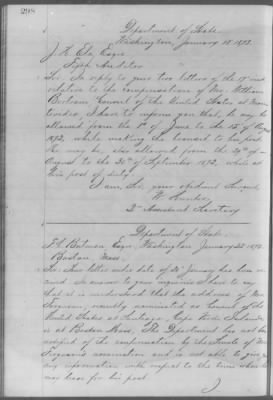 298
Department of State
Washington, January 18, 1873.
J. H. Ela, Esqre
Fifth Auditor.
Sir: In reply to your two letters of the 17th inst
relative to the compensation of Mr. William
Consul of the United States at
I have to inform you that he may be
allowed from the 1st of June to the 15th of
1872, while making the transit to his post
He may be, also, allowed from the 29th of
August to the 30th of September 1872, while at
his post of duty.
I am, Sir, your obedient Servant,
W. Hunter,
2d Assistant Secretary
Department of State
Esqre, Washington January 22, 1873.
Boston Mass.
Sir: Your letter under date of 20th January has been re
ceived. In answer to your inquiries I have to say
that it is understood that the address of Mr
recently nominated as Consul of the
United States at Santiago, Cape Verde Islands,
is at Boston Mass. The Department has not been
advised of the confirmation by the Senate of Mr
nomination and is not able to give
any information with respect to the time when he
may leave for his post.